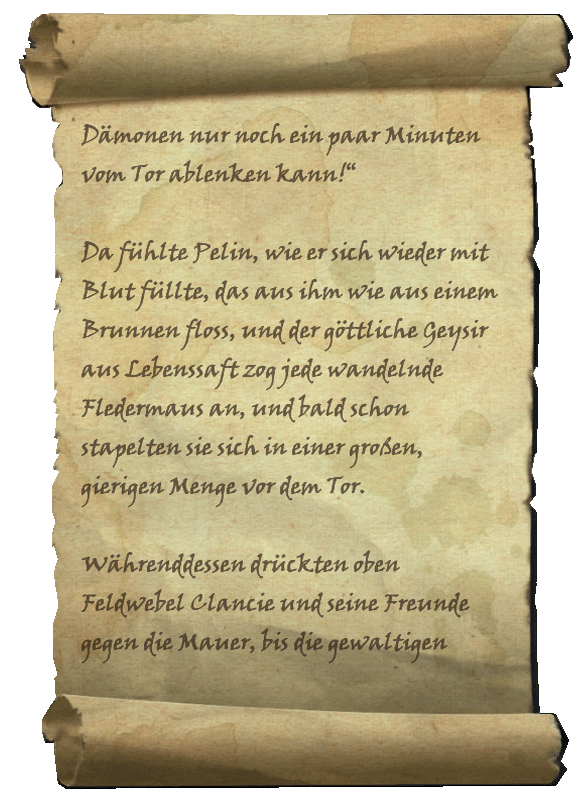 Dämonen nur noch ein paar Minuten
vom Tor ablenken kann!“
Da fühlte Pelin, wie er sich wieder mit
Blut füllte, das aus ihm wie aus einem
Brunnen floss, und der göttliche Geysir
aus Lebenssaft zog jede wandelnde
Fledermaus an, und bald schon
stapelten sie sich in einer großen,
gierigen Menge vor dem Tor.
Währenddessen drückten oben
Feldwebel Clancie und seine Freunde
gegen die Mauer, bis die gewaltigen